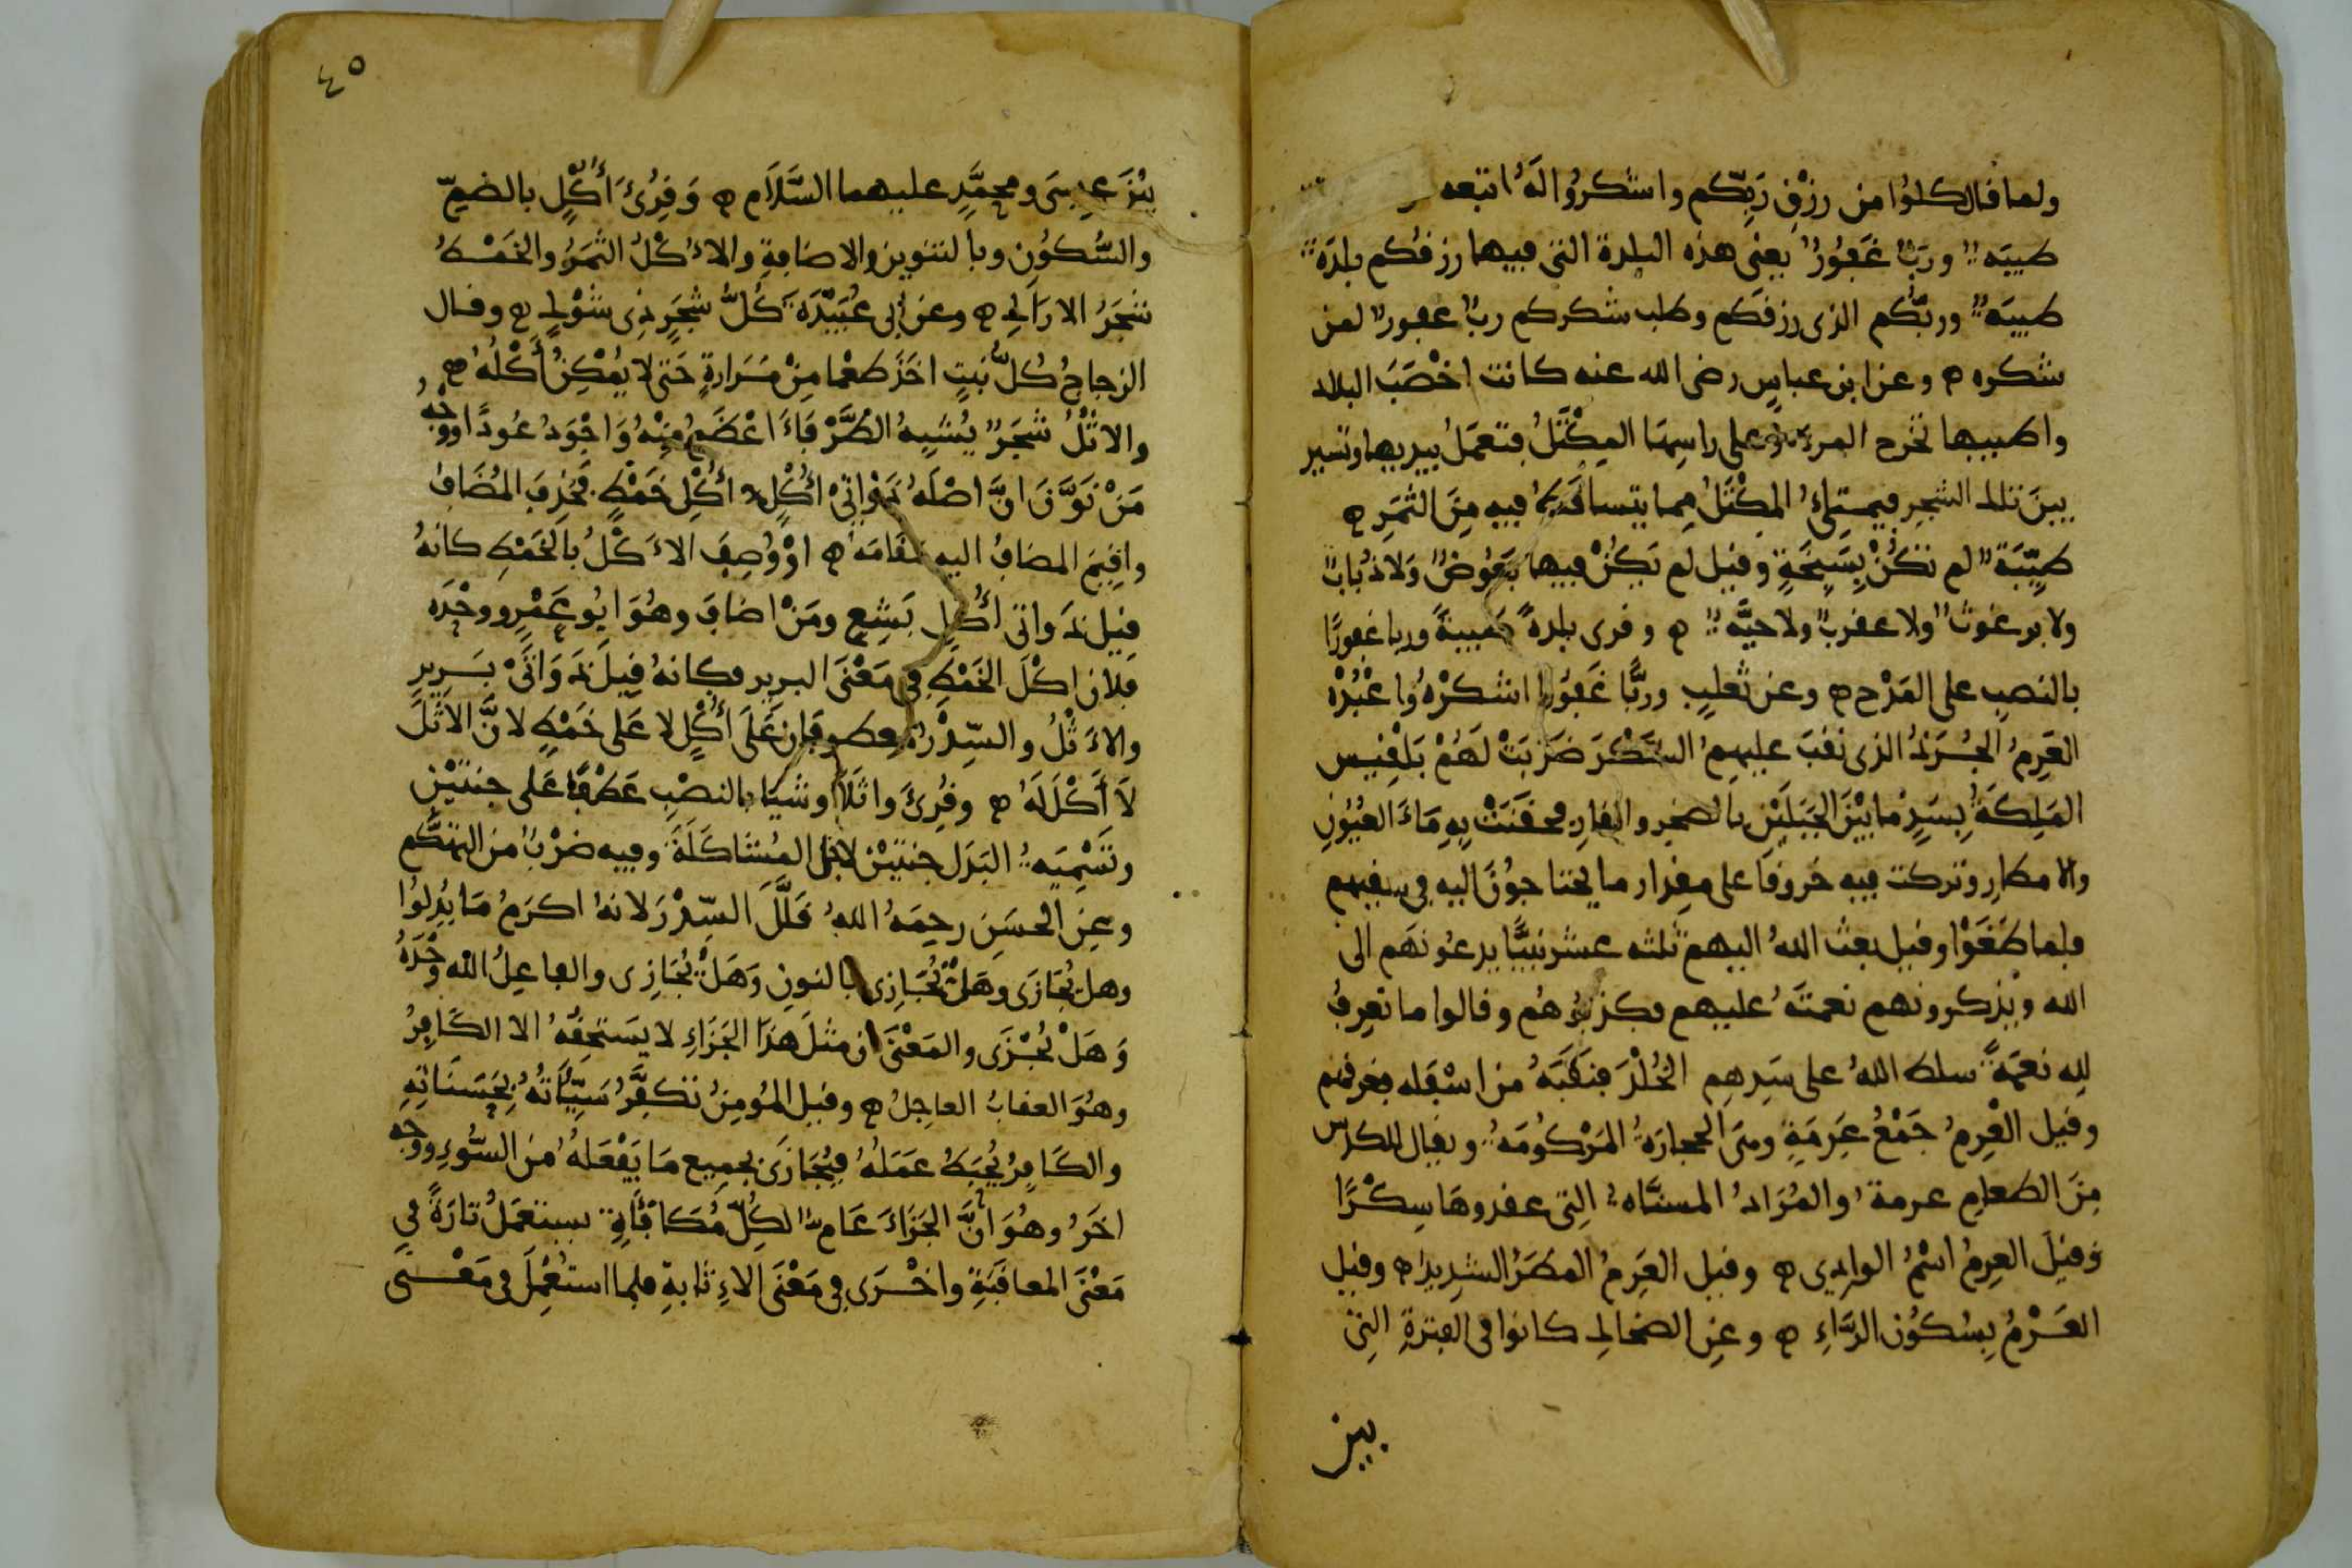 ولما قال كلوا من رزق ربكم واشكروا له اتبعه
طيبة ورب غفور يعنى هذه البلدة التى فيها رزقكم بلدة
طيبة وربكم الذى رزقكم وطلب شكركم رب غفور لمن
شكره ۞ وعن ابن عباس رضى الله عنه كانت اخصب البلاد
واطيبها تخرج المرءة وعلى راسها المكتل فتعمل بيديها وتسير
بين تلك الشجر فيمتلئ المكتل مما يتساقط فيه من الثمر ۞
طيّبة لم تكن بسبخة وقيل لم يكن فيها بعوض ولا ذباب
ولا برغوث ولا عقرب ولا حيّة ۞ وقرى بلدة طيبة وربا غفورًا
بالنصب على المدح ۞ وعن ثعلب وربًّا غفورا اشكره واعبده
العرم الجرذ الذى نقب عليهم السكر ضربت لهم بلقيس
الملكة بسد ما بين الجبلين بالصخر والقار فحقنت به ماء العيون
والامطار وتركت فيه خروقا على مقدار ما يحتاجون اليه فى سقيهم
فلما طغوا وقيل بعث الله اليهم ثلثة عشر نبيًّا يدعونهم الى
الله ويذكرونهم نعمته عليهم فكذبوهم وقالوا ما نعرف
لله نعمة سلط الله على سدهم الخلد فنقبه من اسفله فغرقهم
وقيل العرم جمع عرمة وهى الحجارة المركومة ويقال للكدس
من الطعام عرمة والمراد المسناة التى عقدوها سكرًا
وقيل العرم اسم الوادى ۞ وقيل العرم المطر الشديد ۞ وقيل
العرم بسكون الراء ۞ وعن الضحاك كانوا فى الفترة التى
بين
٤٥
بين عيسى ومحمد عليهما السلام ۞ وقرئ أكل بالضم
والسكون وبالتنوين والاضافة والاكل الثمر والخمط
شجر الاراك ۞ وعن ابى عبيدة كل شجر ذى شوك ۞ وقال
الزجاج كل نبت اخذ طعما من مرارة حتى لا يمكن أكله ۞
والاثل شجر يشبه الطرفاء اعظم منه واجود عودًا ووجه
من نون ان اصله ذواتى أكل أكل خمط فحذف المضاف
واقيم المضاف اليه مقامه ۞ او وصف الاكل بالخمط كانه
قيل ذواتى أكل بشع ومن اضاف وهو ابو عمرو وحده
فلان اكل الخمط فى معنى البرير فكانه قيل ذواتى برير
والاثل والسدر معطوفان على أكل لا على خمط لان الاثل
لا أكل له ۞ وقرئ واثلا وشيا بالنصب عطفا على جنتين
وتسمية البدل جنتين لاجل المشاكلة وفيه ضرب من التهكم
وعن الحسن رحمه الله قلل السدر لانه اكرم ما بدلوا
وهل يجازى وهل نجازى بالنون وهل يجازى والفاعل الله وحده
وهل يجزى والمعنى ان مثل هذا الجزاء لا يستحقه الا الكافر
وهو العقاب العاجل ۞ وقيل المومن تكفر سيّئاته بحسناته
والكافر يحبط عمله فيجازى بجميع ما يفعله من السوء ووجه
اخر وهو أن الجزاء عام لكل مكافأة يستعمل تارة فى
معنى المعاقبة واخرى فى معنى الاثابة فلما استعمل فى معنى